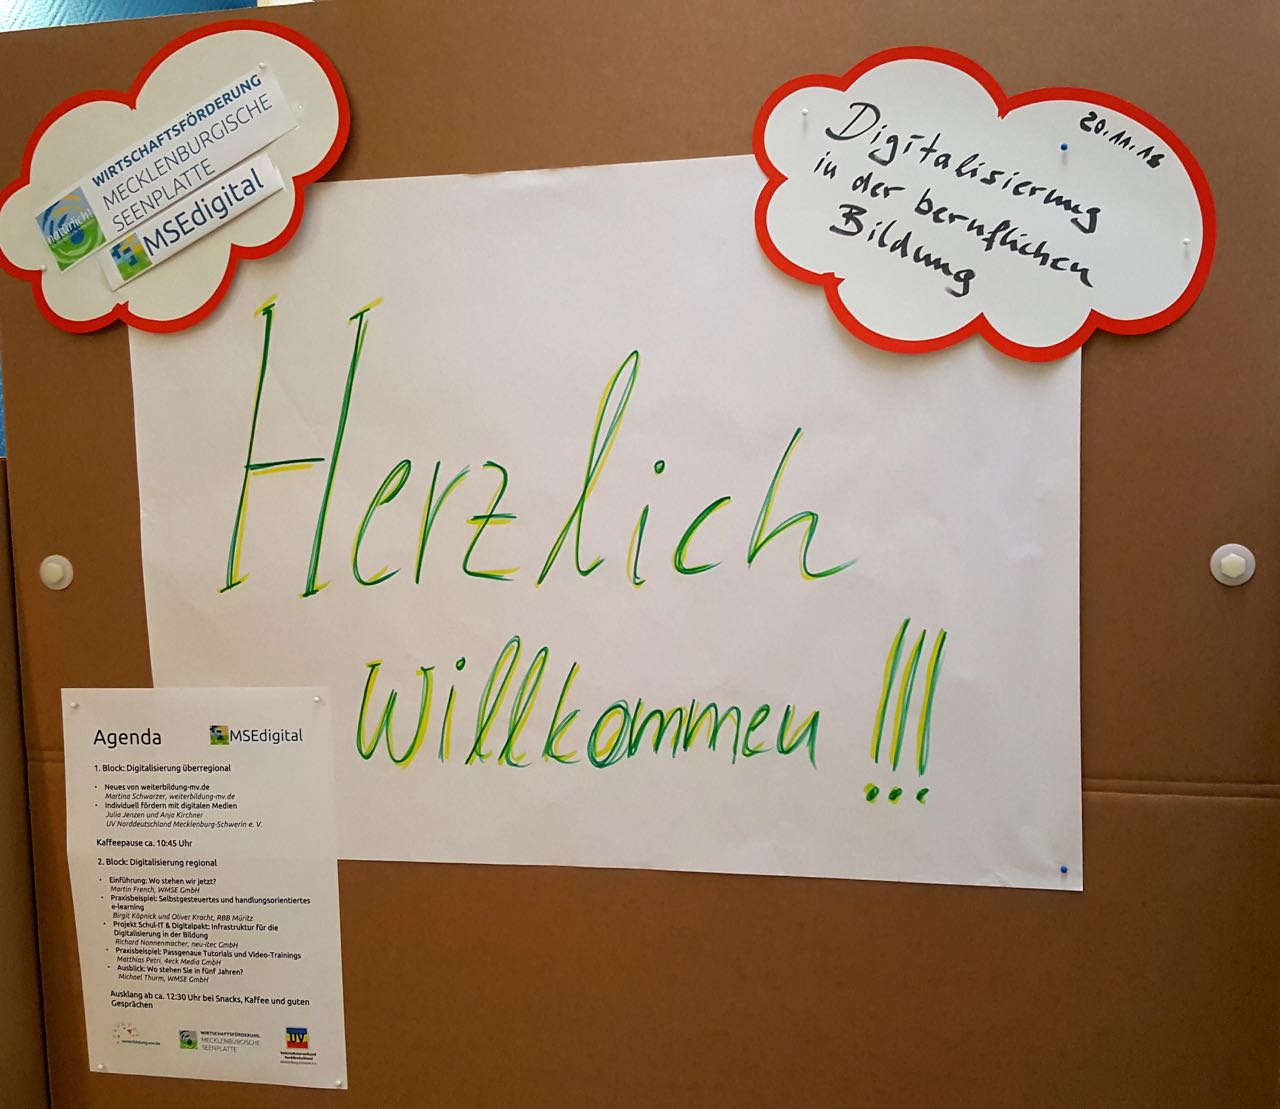 WIRTSCHAFTSFÖRDERUNG
MECKLENBURGISCHE
SEENPLATTE
natürlich!
MSEdigital
20.11.18
Digitalisierung
in der beruflichen
Bildung
Herzlich
Willkommen !!!
Agenda
MSEdigital
1. Block: Digitalisierung überregional
• Neues von weiterbildung-mv.de
Martina Schwarzer, weiterbildung-mv.de
• Individuell fördern mit digitalen Medien
Julia Jenzen und Anja Kirchner
UV Norddeutschland Mecklenburg-Schwerin e. V.
Kaffeepause ca. 10:45 Uhr
2. Block: Digitalisierung regional
• Einführung: Wo stehen wir jetzt?
Martin French, WMSE GmbH
• Praxisbeispiel: Selbstgesteuertes und handlungsorientiertes
e-learning
Birgit Köpnick und Oliver Kracht, RBB Müritz
• Projekt Schul-IT & Digitalpakt: Infrastruktur für die
Digitalisierung in der Bildung
Richard Nonnenmacher, neu-itec GmbH
• Praxisbeispiel: Passgenaue Tutorials und Video-Trainings
Matthias Petri, 4eck Media GmbH
• Ausblick: Wo stehen Sie in fünf Jahren?
Michael Thurm, WMSE GmbH
Ausklang ab ca. 12:30 Uhr bei Snacks, Kaffee und guten
Gesprächen
weiterbildung-mv.de
WIRTSCHAFTSFÖRDERUNG
MECKLENBURGISCHE
SEENPLATTE
UV
Unternehmerverband
Norddeutschland